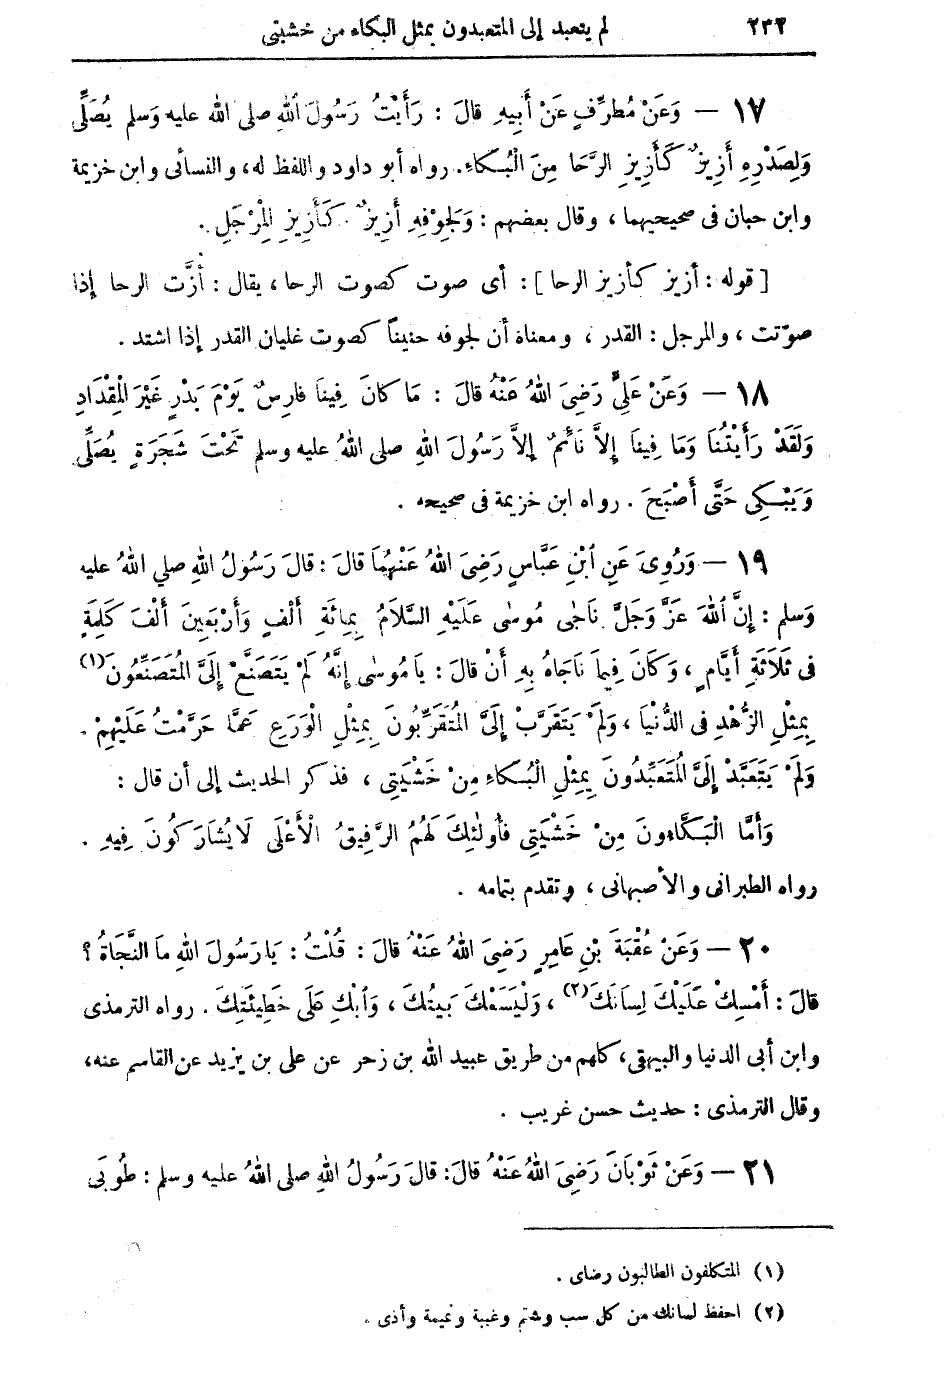 ٢٣٢ لم يتعبد إلى المتعبدون بمثل البكاء من خشيتى
١٧ — وَعَنْ مُطَرِّفٍ عَنْ أَبِيهِ قالَ : رَأَيْتُ رَسُولَ اللهِ صلى الله عليه وَسلم يُصَلِّى
وَلِصَدْرِهِ أَزِيزٌ كَأَزِيزِ الرَّحَا مِنَ الْبُكَاءِ. رواه أبو داود واللفظ له، والنسائى وابن خزيمة
وابن حبان فى صحيحيهما ، وقال بعضهم : وَلِجَوْفِهِ أَزِيزٌ كَأَزِيزِ الْمِرْجَلِ .
[ قوله : أزيز كأزيز الرحا ] : أى صوت كصوت الرحا ، يقال : أزَّت الرحا إذا
صوّتت ، والمرجل : القدر ، ومعناه أن لجوفه حنيناً كصوت غليان القدر إذا اشتد .
١٨ — وَعَنْ عَلِىٍّ رَضِىَ اللهُ عَنْهُ قالَ : مَا كانَ فِينَا فارِسٌ يَوْمَ بَدْرٍ غَيْرَ الْمِقْدَادِ
وَلَقَدْ رَأَيْتُنَا وَمَا فِينَا إِلاَّ نَائمٌ إلاَّ رَسُولَ اللهِ صلى اللهُ عليه وسلم تَحْتَ شَجَرَةٍ يُصَلِّى
وَيَبْكِى حَتَّى أَصْبَحَ . رواه ابن خزيمة فى صحيحه .
١٩ — وَرُوِىَ عَنِ ابْنِ عَبَّاسٍ رَضِىَ اللهُ عَنْهُمَا قالَ : قالَ رَسُولُ اللهِ صلي اللهُ عليه
وَسلم : إِنَّ اللهَ عَزَّ وَجَلَّ نَاجٰى مُوسٰى عَلَيْهِ السَّلاَمُ بِمِائَةِ أَلْفٍ وَأَرْبَعِينَ أَلْفَ كَلِمَةٍ
فى ثَلَاثَةِ أَيَّامٍ ، وَكَانَ فِيمَا نَاجَاهُ بِهِ أَنْ قالَ : يا مُوسٰى إِنَّهُ لَمْ يَتَصَنَّعْ إِلَىَّ الْمُتَصَنِّعُونَ(١)
بِمِثْلِ الزُّهْدِ فى الدُّنْيَا ، وَلَمْ يَتَقَرَّبْ إِلَىَّ الْمُتَقَرِّبُونَ بِمِثْلِ الْوَرَعِ عَمَّا حَرَّمْتُ عَلَيْهِمْ .
وَلَمْ يَتَعَبَّدْ إِلَىَّ الْمُتَعَبِّدُونَ بِمِثْلِ الْبُكَاءِ مِنْ خَشْيَتِى ، فذكر الحديث إلى أن قال :
وَأَمَّا الْبَكَّاءونَ مِنْ خَشْيَتِى فأُولٰئِكَ لَهُمُ الرَّفِيقُ الْأَعْلَى لَا يُشَارَكُونَ فِيهِ .
رواه الطبرانى والأصبهانى ، وتقدم بتمامه .
٢٠ — وَعَنْ عُقْبَةَ بْنِ عَامِرٍ رَضِىَ اللهُ عَنْهُ قالَ : قُلْتُ : يَا رَسُولَ اللهِ مَا النَّجَاةُ ؟
قالَ : أَمْسِكْ عَلَيْكَ لِسَانَكَ(٢) ، وَلْيَسَعْكَ بَيتُكَ ، وَابْكِ عَلَى خَطِيئَتِكَ . رواه الترمذى
وابن أبى الدنيا والبيهقى، كلهم من طريق عبيد الله بن زحر عن على بن يزيد عن القاسم عنه،
وقال الترمذى : حديث حسن غريب .
٢١ — وَعَنْ ثَوْبَانَ رَضِىَ اللهُ عَنْهُ قالَ: قالَ رَسُولُ اللهِ صلى اللهُ عليه وسلم : طُوبَى
(١) المتكلفون الطالبون رضاى .
(٢) احفظ لسانك من كل سب وشتم وغيبة ونميمة وأذى .